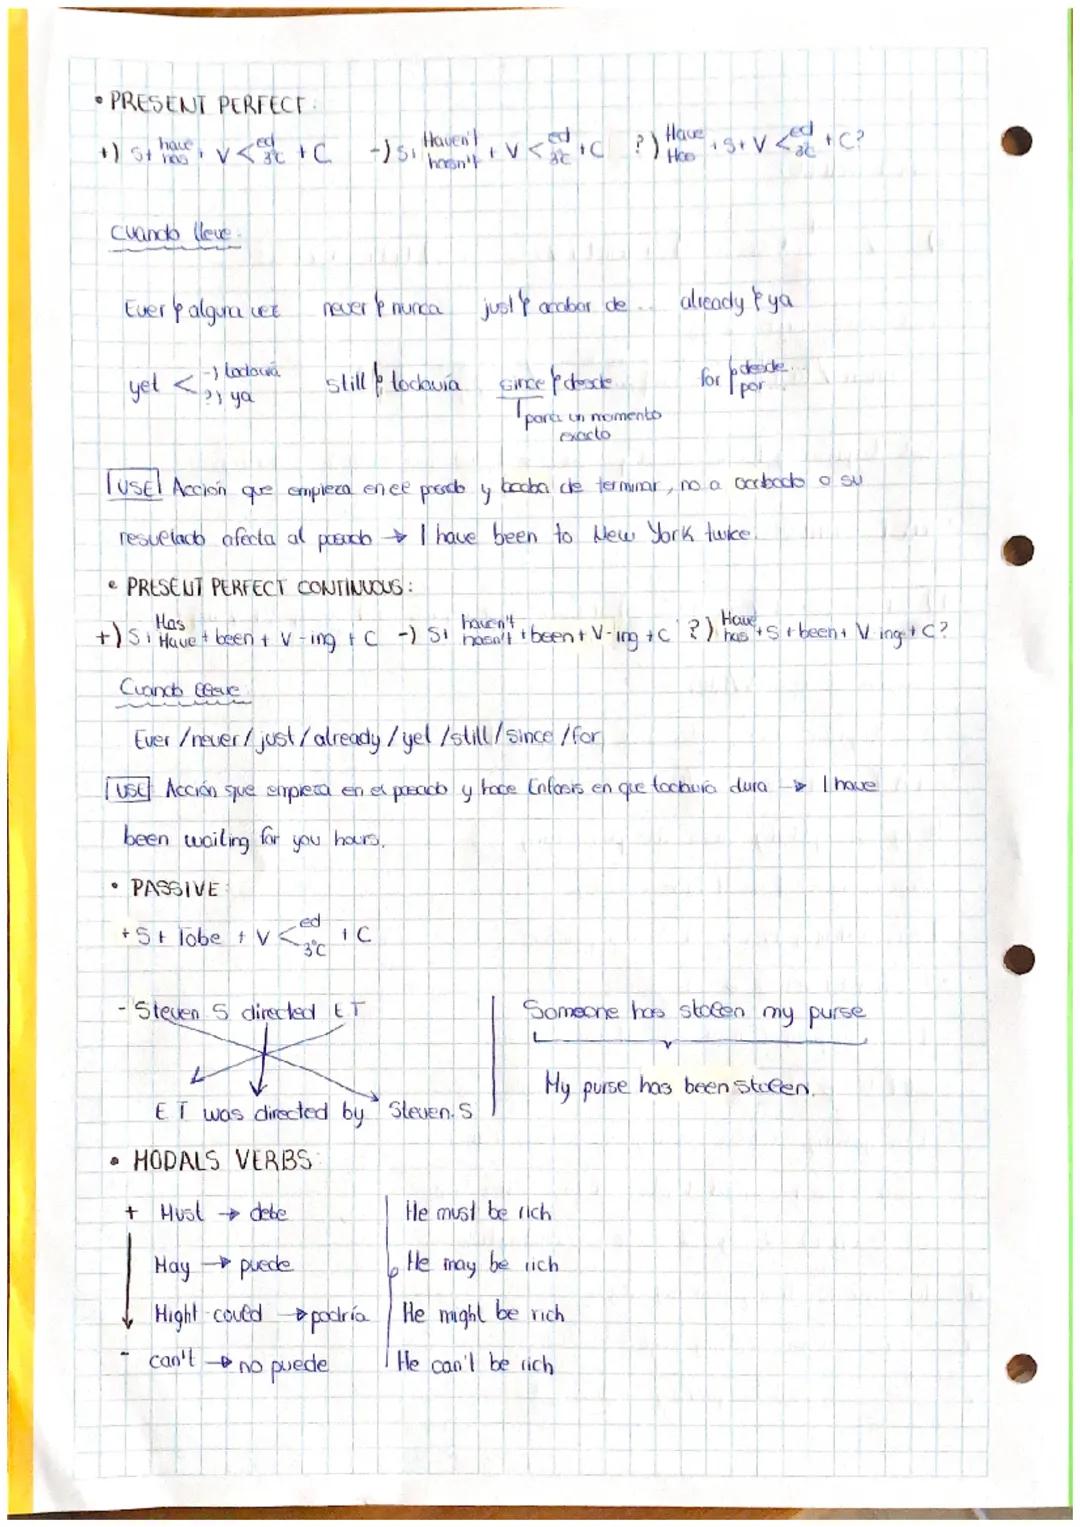 • PRESENT PERFECT:
+) S+ have/has + V < ed/3ªC + C -) S+ Haven't/hasn't + V < ed/3ªC + C ?) Have/Has + S + V < ed/3ªC + C?
Cuando lleve:
Ever → alguna vez never → nunca just → acabar de... already → ya
yet < -) todavía / ?) ya still → todavía since → desde for → desde... / por...
para un momento
exacto
USE Acción que empieza en el pasado y acaba de terminar, no a acabado o su
resuelado afecta al pasado → I have been to New York twice.
• PRESENT PERFECT CONTINUOUS:
+) S+ Has/Have + been + V-ing + C -) S+ haven't/hasn't + been + V-ing + C ?) Have/has + S + been + V-ing + C?
Cuando lleve
Ever / never / just / already / yet / still / since / for
USE Acción que empieza en el pasado y hace énfasis en que todavía dura → I have
been waiting for you hours.
• PASSIVE:
+ S + Tobe + V < ed/3ªC + C
- Steven S directed ET
ET was directed by Steven.S
Someone has stolen my purse
My purse has been stolen.
• MODALS VERBS:
+ Must → debe He must be rich
May → puede He may be rich
Might - could → podría He might be rich
- can't → no puede He can't be rich